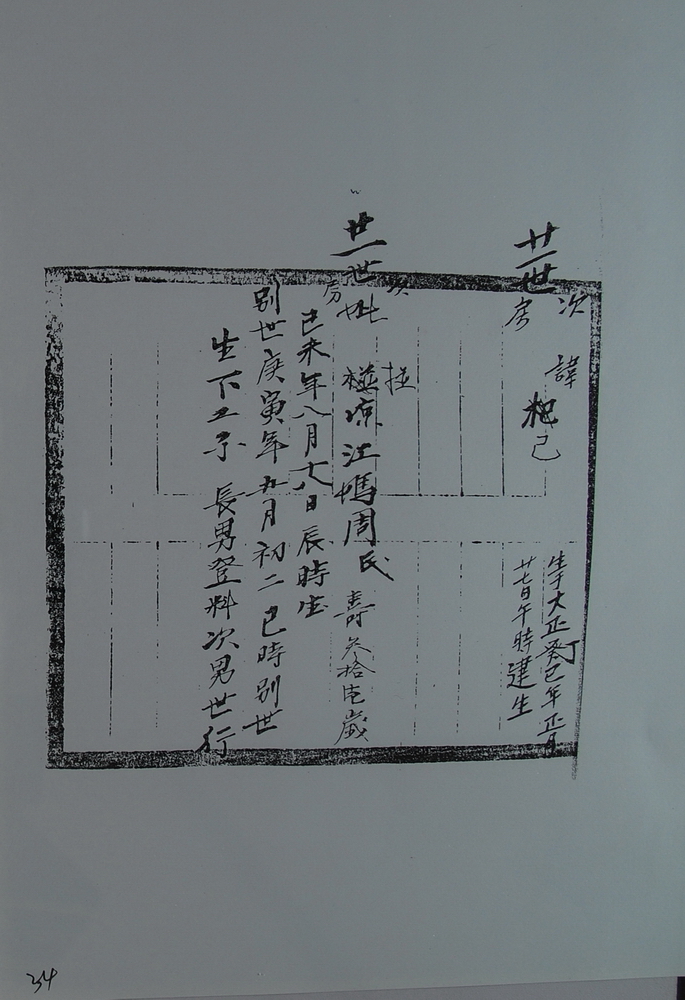 廿一世
次房
諱 杞己
生于大正丁巳年正月
廿七日午時建生
廿一世妣
次房
拄
凉江媽周氏
壽叁拾弍歲
己未年八月十八日辰時生
別世庚寅年五月初二巳時別世
生下二子 長男登科次男世行
34